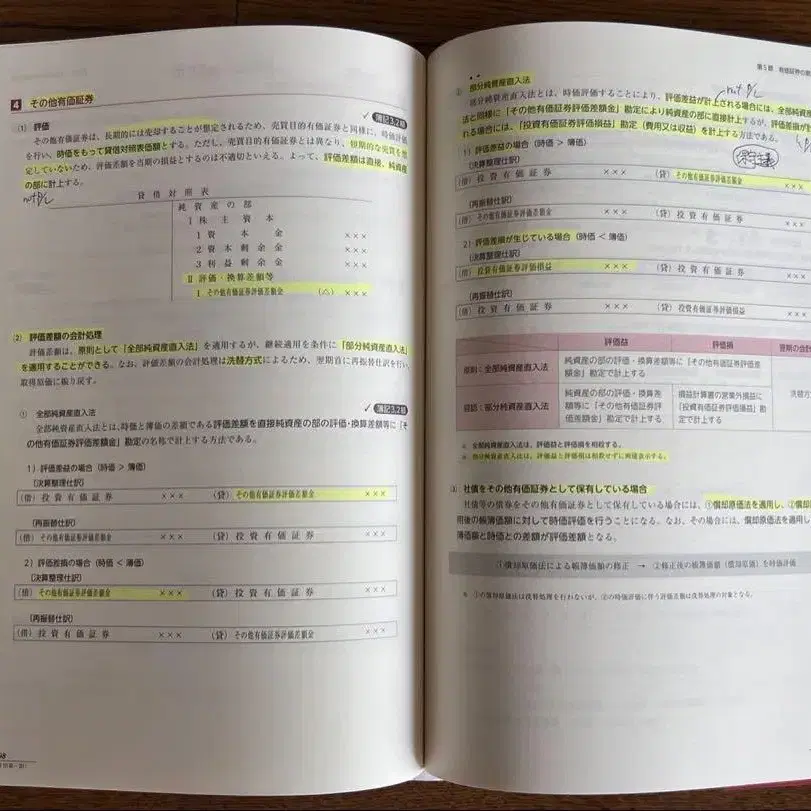 4 その他有価証券
簿記3,2級
(1) 評価
その他有価証券は、長期的には売却することが想定されるため、売買目的有価証券と同様に、時価評価
を行い、時価をもって貸借対照表価額とする。ただし、売買目的有価証券とは異なり、短期的な売買を想
定していないため、評価差額を当期の損益とするのは不適切といえる。よって、評価差額は直接、純資産
の部に計上する。
not P/L
貸借対照表
純資産の部
Ⅰ 株主資本
1 資本金 ×××
2 資本剰余金 ×××
3 利益剰余金 ×××
Ⅱ 評価・換算差額等
1 その他有価証券評価差額金 (△) ×××
(2) 評価差額の会計処理
評価差額は、原則として「全部純資産直入法」を適用するが、継続適用を条件に「部分純資産直入法」
を適用することができる。なお、評価差額の会計処理は洗替方式によるため、翌期首に再振替仕訳を行い、
取得原価に振り戻す。
① 全部純資産直入法
簿記3,2級
全部純資産直入法とは、時価と簿価の差額である評価差額を直接純資産の部の評価・換算差額等に「そ
の他有価証券評価差額金」勘定の名称で計上する方法である。
1) 評価差益の場合（時価 > 簿価）
〔決算整理仕訳〕
(借) 投資有価証券 ××× (貸) その他有価証券評価差額金 ×××
〔再振替仕訳〕
(借) その他有価証券評価差額金 ××× (貸) 投資有価証券 ×××
2) 評価差損の場合（時価 < 簿価）
〔決算整理仕訳〕
(借) その他有価証券評価差額金 ××× (貸) 投資有価証券 ×××
〔再振替仕訳〕
(借) 投資有価証券 ××× (貸) その他有価証券評価差額金 ×××
98
第5章 有価証券の
② 部分純資産直入法
not P/L
部分純資産直入法とは、時価評価することにより、評価差益が計上される場合には、全部純資
法と同様に「その他有価証券評価差額金」勘定により純資産の部に直接計上するが、評価差損
れる場合には、「投資有価証券評価損益」勘定（費用又は収益）を計上する方法である。
保守主義
1) 評価差益の場合（時価 > 簿価）
〔決算整理仕訳〕
(借) 投資有価証券 ××× (貸) その他有価証券評価差額金 ×
〔再振替仕訳〕
(借) その他有価証券評価差額金 ××× (貸) 投資有価証券 ×
2) 評価差損が生じている場合（時価 < 簿価）
〔決算整理仕訳〕
(借) 投資有価証券評価損益 ××× (貸) 投資有価証券 ××
〔再振替仕訳〕
(借) 投資有価証券 ××× (貸) 投資有価証券評価損益 ××
評価益 評価損 翌期の会計
原則：全部純資産直入法 純資産の部の評価・換算差額等に「その他有価証券評価差
額金」勘定で計上する
容認：部分純資産直入法 純資産の部の評価・換算差
額等に「その他有価証券評
価差額金」勘定で計上する
損益計算書の営業外損益に
「投資有価証券評価損益」勘
定で計上する
洗替方
※ 全部純資産直入法は、評価益と評価損を相殺する。
※ 部分純資産直入法は、評価益と評価損は相殺せずに両建表示する。
③ 社債をその他有価証券として保有している場合
社債等の債券をその他有価証券として保有している場合には、①償却原価法を適用し、②償却
用後の帳簿価額に対して時価評価を行うことになる。なお、その場合には、償却原価法を適用し
簿価額と時価との差額が評価差額となる。
①償却原価法による帳簿価額の修正 → ②修正後の帳簿価額（償却原価）を時価評価
※ ①の償却原価法は洗替処理を行わないが、②の時価評価に伴う評価差額は洗替処理の対象となる。